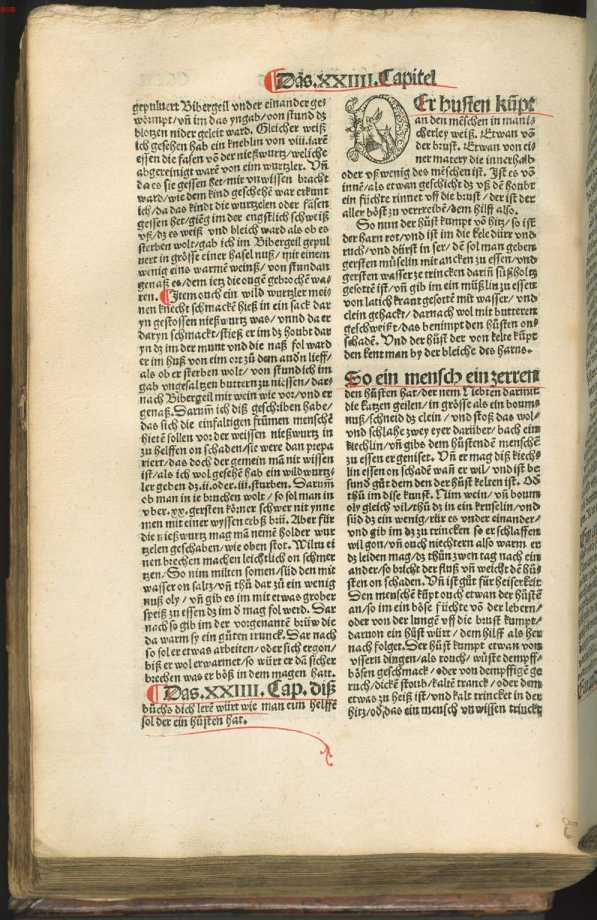 Das.XXIIII.Capitel
gepuluert Bibergeil vnder einander ge⸗
würmpt/vñ im das yngab/von stund dz
blotzen nider geleit ward. Gleicher weiß
ich gesehen hab ein kneblin von viii.iarē
essen die fasen võ der nießwurtz/weliche
abgereinigt warē von eim wurtzler. Vñ
da es sie gessen het/mir vnwissen bracht
ward/wie dem kind geschehē war erkunt
ich/da das kindt die wurtzelen oder fasen
gessen het/gieg im der engstlich schweiß
vß/dz es weiß vnd bleich ward als ob es
sterben wolt/gab ich im Bibergeil gepul
uert in grösse einer haselnuß/mit einem
wenig eins warmē weinß/von stundan
genaß es/dem ietz die ougē gebrochē wa⸗
ren. Item ouch ein wild wurtzler mei⸗
nen knecht schmackē hieß in ein sack dar
yn gestossen nießwurtz was/vnnd da er
daryn schmackt/stieß er im dz houbt dar
yn dz im der munt vnd die naß fol ward
er im huß von eim ort zů dem andn lieff/
als ob er sterben wolt/von stund ich im
gab vngsaltzen buttern zů niessen/dar⸗
nach Bibergeil mit wein wie vor/vnd er
genaß. Darum ich diß geschriben habe/
das sich die einfaltigen frümen menschē
hietē sollen vor der weissen nießwurtz in
zů helffen on schaden/sie were dan prepa
riert/das doch der gemein mā nit wissen
ist/als ich wol gesehē hab ein wildwurtz⸗
ler geben dz.ii.oder.iii.sturben. Darum
ob man in ie bruchen wolt/so sol man in
vber.xx.gersten körner schwer nit ynne
men mit einer wyssen erbß brü. Aber für
die nießwurtz mag mā nemē holder wur
tzelen geschaben/wie oben stot. Wiltu ei
nen brechen machen leichtlich on schmer
tzen/So nim milten somen/süd den mit
wasser on saltz/vñ thů dar zů ein wenig
nuß oly/vñ gib es im mit etwas grober
speiß zů essen dz im d mag fol werd. Dar
nach so gib im der vorgenantē brüw die
da warm sy ein gůten trunck. Dar nach
so sol er etwas arbeiten/oder sich ergon/
biß er wol erwarmet/so würt er dā sicher
brechen was er böß in dem magen hatt.
Das.XXIIII.Cap.diß
bůchs dich lerē würt wie man eim helffē
sol der ein hůsten hat.
Er husten kūpt
an den mēschen in manic
cherley weiß. Etwan võ
der brust. Etwan von ei⸗
ner matery die innerhalb
oder vßwenig des mēschen ist. Ist es võ
innē/als etwan geschicht dz vß dē houbt
ein füchte rinnet vff die brust/der ist der
aller böst zů verreibē/dem hilff also.
So nun der hůst kumpt võ hitz/so ist
der harn rot/vnd ist im die kele dürr vnd
ruch/vnd dürst in ser/dē sol man geben
gersten müselin mit ancken zů essen/vnd
gersten wasser ze trincken darin süßholtz
gesottē ist/vñ gib im ein müßlin zů essen
von latich kraut gesottē mit wasser/vnd
clein gehackt/darnach wol mit butteren
geschweißt/das benimpt den hůsten on⸗
schadē. Vnd der hůst der von kelte kūpt
den kent man by der bleiche des harns.
So ein mensch ein zerren
den hůsten hat/der nem Nebten darnůt
die katzen geilen/in grösse als ein boum⸗
nuß/schneid dz clein/vnd stoß das wol/
vnd schlahe zwey eyer darüber/bach ein
kiechlin/vñ gibs dem hůstendē menschē
zů essen er geniset. Vñ er mag diß kiechs
lin essen on schadē wañ er wil/vnd ist be
sund gůt dem den der hůst kelten ist. Od
thů im dise kunst. Nim wein/vñ boum
oly gleich vil/thů dz in ein kenselin/vnd
süd dz ein wenig/rür es vnder einander/
vnd gib im dz zů trincken so er schlaffen
wil gon/vñ ouch niechtern also warm er
dz leiden mag/dz thůn zwen tag nach ein
ander/so bricht der fluß vñ weicht dē hů⸗
sten on schaden. Vñ ist gůt für heiserkeit
Den menschē kūpt ouch etwan der hůstē
an/so im ein böse füchte võ der lebern/
oder von der lungē vff die brust kumpt/
daruon ein hůst würt/dem hilff als her
nach folget. Der hůst kumpt etwan von
vssern dingen/als rouch/wüste dempff⸗
bösen geschmack/oder von dempffigē ge
ruch/dickē stoub/kaltē tranck/oder dem
etwas zů heiß ist/vnd kalt trincket in der
hitz/od das ein mensch vnwissen trinckt